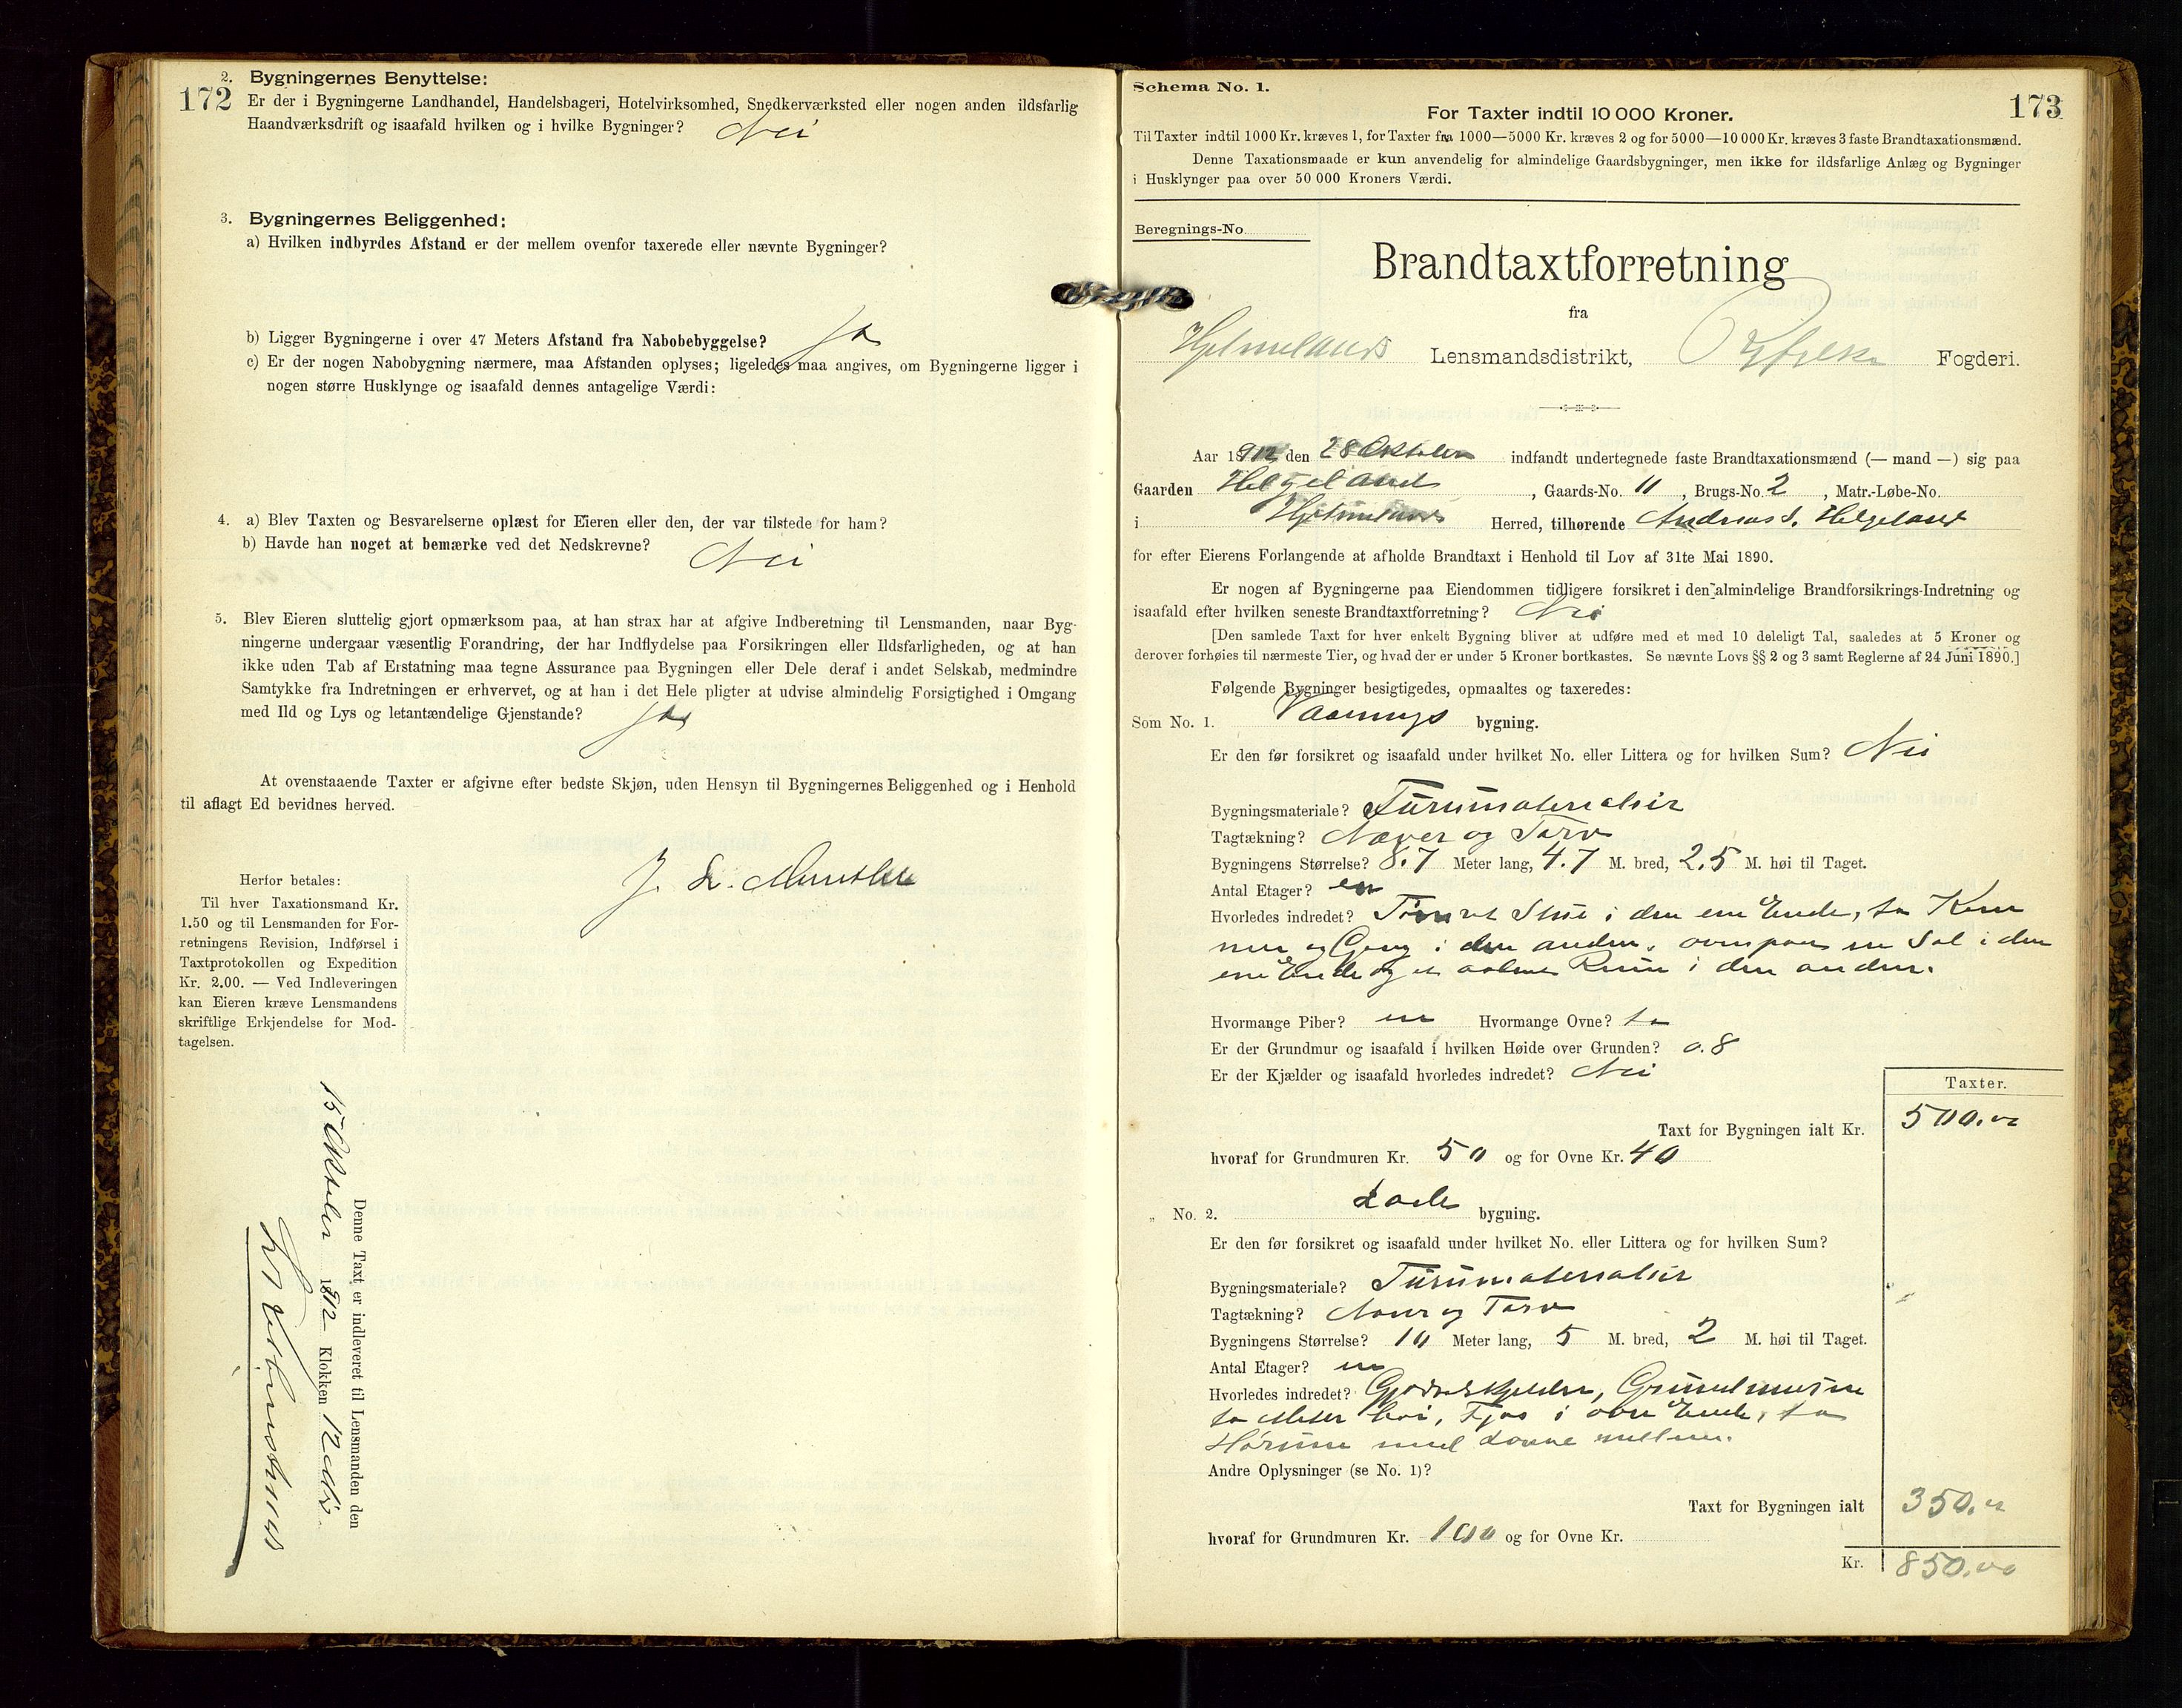 172
2. Bygningernes Benyttelse:
Er der i Bygningerne Landhandel, Handelsbageri, Hotelvirksomhed, Snedkerværksted eller nogen anden ildsfarlig
Haandværksdrift og isaafald hvilken og i hvilke Bygninger? Nei
3. Bygningernes Beliggenhed:
a) Hvilken indbyrdes Afstand er der mellem ovenfor taxerede eller nævnte Bygninger?
b) Ligger Bygningerne i over 47 Meters Afstand fra Nabobebyggelse? Ja
c) Er der nogen Nabobygning nærmere, maa Afstanden oplyses; ligeledes maa angives, om Bygningerne ligger i
nogen større Husklynge og isaafald dennes antagelige Værdi:
4. a) Blev Taxten og Besvarelserne oplæst for Eieren eller den, der var tilstede for ham?
b) Havde han noget at bemærke ved det Nedskrevne? Nei
5. Blev Eieren sluttelig gjort opmærksom paa, at han strax har at afgive Indberetning til Lensmanden, naar Byg-
ningerne undergaar væsentlig Forandring, der har Indflydelse paa Forsikringen eller Ildsfarligheden, og at han
ikke uden Tab af Erstatning maa tegne Assurance paa Bygningen eller Dele deraf i andet Selskab, medmindre
Samtykke fra Indretningen er erhvervet, og at han i det Hele pligter at udvise almindelig Forsigtighed i Omgang
med Ild og Lys og letantændelige Gjenstande? Ja
At ovenstaaende Taxter er afgivne efter bedste Skjøn, uden Hensyn til Bygningernes Beliggenhed og i Henhold
til aflagt Ed bevidnes herved.
J. L.
Herfor betales:
Til hver Taxationsmand Kr.
1.50 og til Lensmanden for For-
retningens Revision, Indførsel i
Taxtprotokollen og Expedition
Kr. 2.00. — Ved Indleveringen
kan Eieren kræve Lensmandens
skriftlige Erkjendelse for Mod-
tagelsen.
Denne Taxt er indleveret til Lensmanden den
15 Oktober 1912 Klokken 12
173
Schema No. 1.
For Taxter indtil 10 000 Kroner.
Til Taxter indtil 1000 Kr. kræves 1, for Taxter fra 1000—5000 Kr. kræves 2 og for 5000—10 000 Kr. kræves 3 faste Brandtaxationsmænd.
Denne Taxationsmaade er kun anvendelig for almindelige Gaardsbygninger, men ikke for ildsfarlige Anlæg og Bygninger
i Husklynger paa over 50 000 Kroners Værdi.
Beregnings-No.
Brandtaxtforretning
fra
Hjelmelands Lensmandsdistrikt, Ryfylke Fogderi.
Aar 1912 den 28 Oktober indfandt undertegnede faste Brandtaxationsmænd (— mand —) sig paa
Gaarden Helgeland, Gaards-No. 11, Brugs-No. 2, Matr.-Løbe-No.
i Hjelmelands Herred, tilhørende Andreas S. Helgeland
for efter Eierens Forlangende at afholde Brandtaxt i Henhold til Lov af 31te Mai 1890.
Er nogen af Bygningerne paa Eiendommen tidligere forsikret i den almindelige Brandforsikrings-Indretning og
isaafald efter hvilken seneste Brandtaxtforretning? Nei
[Den samlede Taxt for hver enkelt Bygning bliver at udføre med et med 10 deleligt Tal, saaledes at 5 Kroner og
derover forhøies til nærmeste Tier, og hvad der er under 5 Kroner bortkastes. Se nævnte Lovs §§ 2 og 3 samt Reglerne af 24 Juni 1890.]
Følgende Bygninger besigtigedes, opmaaltes og taxeredes:
Som No. 1. Vaanings bygning.
Er den før forsikret og isaafald under hvilket No. eller Littera og for hvilken Sum? Nei
Bygningsmateriale? Furumaterialier
Tagtækning? Næver og Torv
Bygningens Størrelse? 8.7 Meter lang, 4.7 M. bred, 2.5 M. høi til Taget.
Antal Etager? en
Hvorledes indredet? Tømret Stue i den ene Ende, to Kam
mer og Gang i den anden. ovenpaa en Sal i den
ene Ende og et aabent Rum i den anden.
Hvormange Piber? en Hvormange Ovne? to
Er der Grundmur og isaafald i hvilken Høide over Grunden? 0.8
Er der Kjælder og isaafald hvorledes indredet? Nei
Taxter.
Taxt for Bygningen ialt Kr. 500.00
hvoraf for Grundmuren Kr. 50 og for Ovne Kr. 40
„ No. 2. Lade bygning.
Er den før forsikret og isaafald under hvilket No. eller Littera og for hvilken Sum?
Bygningsmateriale? Furumaterialier
Tagtækning? Næver og Torv
Bygningens Størrelse? 10 Meter lang, 5 M. bred, 2 M. høi til Taget.
Antal Etager? en
Hvorledes indredet? Gjødselskjelder, Grundmurene
to Meter høi, Fjøs i øvre Ende, to
Hørum med Laave mellem.
Andre Oplysninger (se No. 1)?
Taxt for Bygningen ialt 350.00
hvoraf for Grundmuren Kr. 100 og for Ovne Kr.
Kr. 850.00